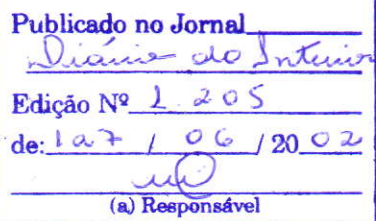 Publicado no Jornal
Diário do Interior
Edição Nº 1.205
de: 1 a 7 / 06 / 20 02
(a) Responsável